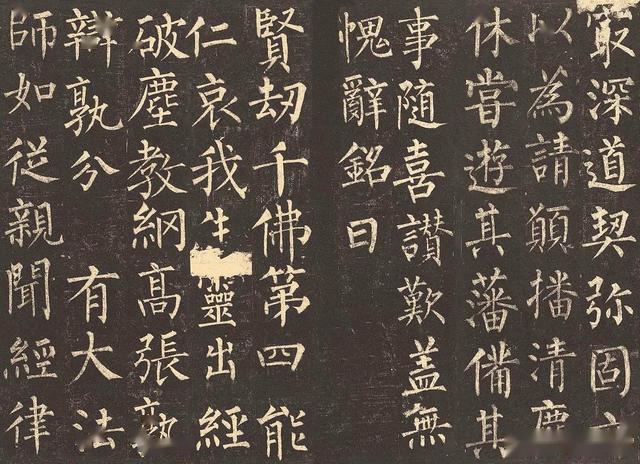 冣深道契弥固
以為請願播清塵
休甞遊其藩備其
事随喜讃歎盖無
愧辭銘曰
賢劫千佛第四能
仁哀我生靈出經
破塵教網高張孰
辯孰分 有大法
師如從親聞經律